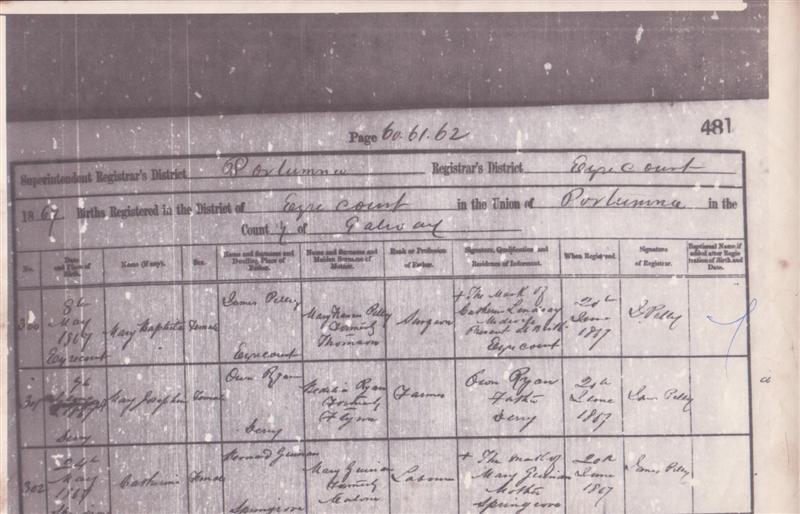 Page 60.61.62
481
Superintendent Registrar's District Portumna Registrar's District Eyrecourt
1867 Births Registered in the District of Eyrecourt in the Union of Portumna in the
County of Galway
No.
Date and Place of Birth.
Name (if any).
Sex.
Name and Surname and Dwelling Place of Father.
Name and Surname and Maiden Surname of Mother.
Rank or Profession of Father.
Signature, Qualification and Residence of Informant.
When Registered.
Signature of Registrar.
Baptismal Name, if added after Registration of Birth, and Date.
300
8th
May
1867
Eyrecourt
Mary Baptista
Female
James Pelly
Eyrecourt
Pelly
Formerly
Thomson
Surgeon
+ The Mark of
Catherine
Midwife
Present at Birth
Eyrecourt
20th
June
1867
J. Pelly
301
9th
Derry
Mary Josephine
Female
Owen Ryan
Derry
Bedelia Ryan
Formerly
Flynn
Farmer
Owen Ryan
Father
Derry
20th
June
1867
Pelly
302
24th
May
1867
Catherine
Female
Bernard Guinan
Springrove
Mary Guinan
Formerly
Malone
Labourer
+ The mark of
Mary Guinan
Mother
Springrove
20th
June
1867
James Pelly